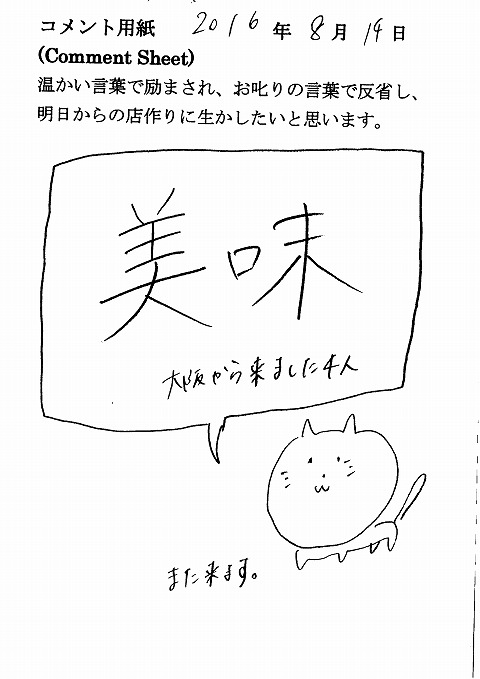 コメント用紙 2016年8月19日
(Comment Sheet)
温かい言葉で励まされ、お叱りの言葉で反省し、
明日からの店作りに生かしたいと思います。
美味
大阪から来ました4人
また来ます。